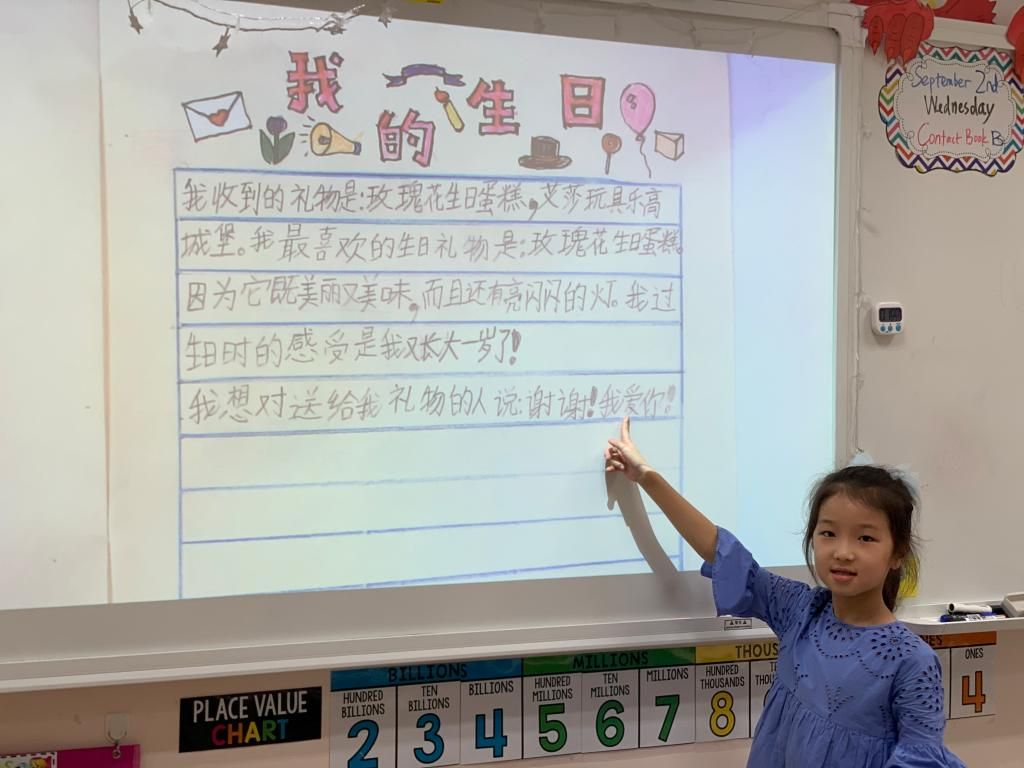 我的生日
我收到的礼物是:玫瑰花生日蛋糕,艾莎玩具乐高
城堡。我最喜欢的生日礼物是:玫瑰花生日蛋糕。
因为它既美丽又美味,而且还有亮闪闪的灯。我过
生日时的感受是我又长大一岁了!
我想对送给我礼物的人说:谢谢!我爱你!
September 2nd
Wednesday
Contact Book B
PLACE VALUE
CHART
BILLIONS
MILLIONS
THOU
HUNDRED BILLIONS
TEN BILLIONS
BILLIONS
HUNDRED MILLIONS
TEN MILLIONS
MILLIONS
HUNDRED THOUSANDS
ONES
2 3 4 5 6 7 8 4